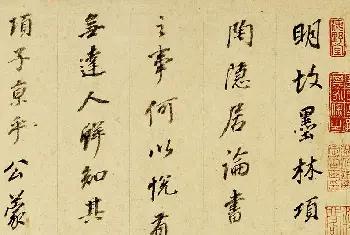 明故墨林項
陶隐居論書
之事何以悅有
無達人解知其
項子京乎公蒙